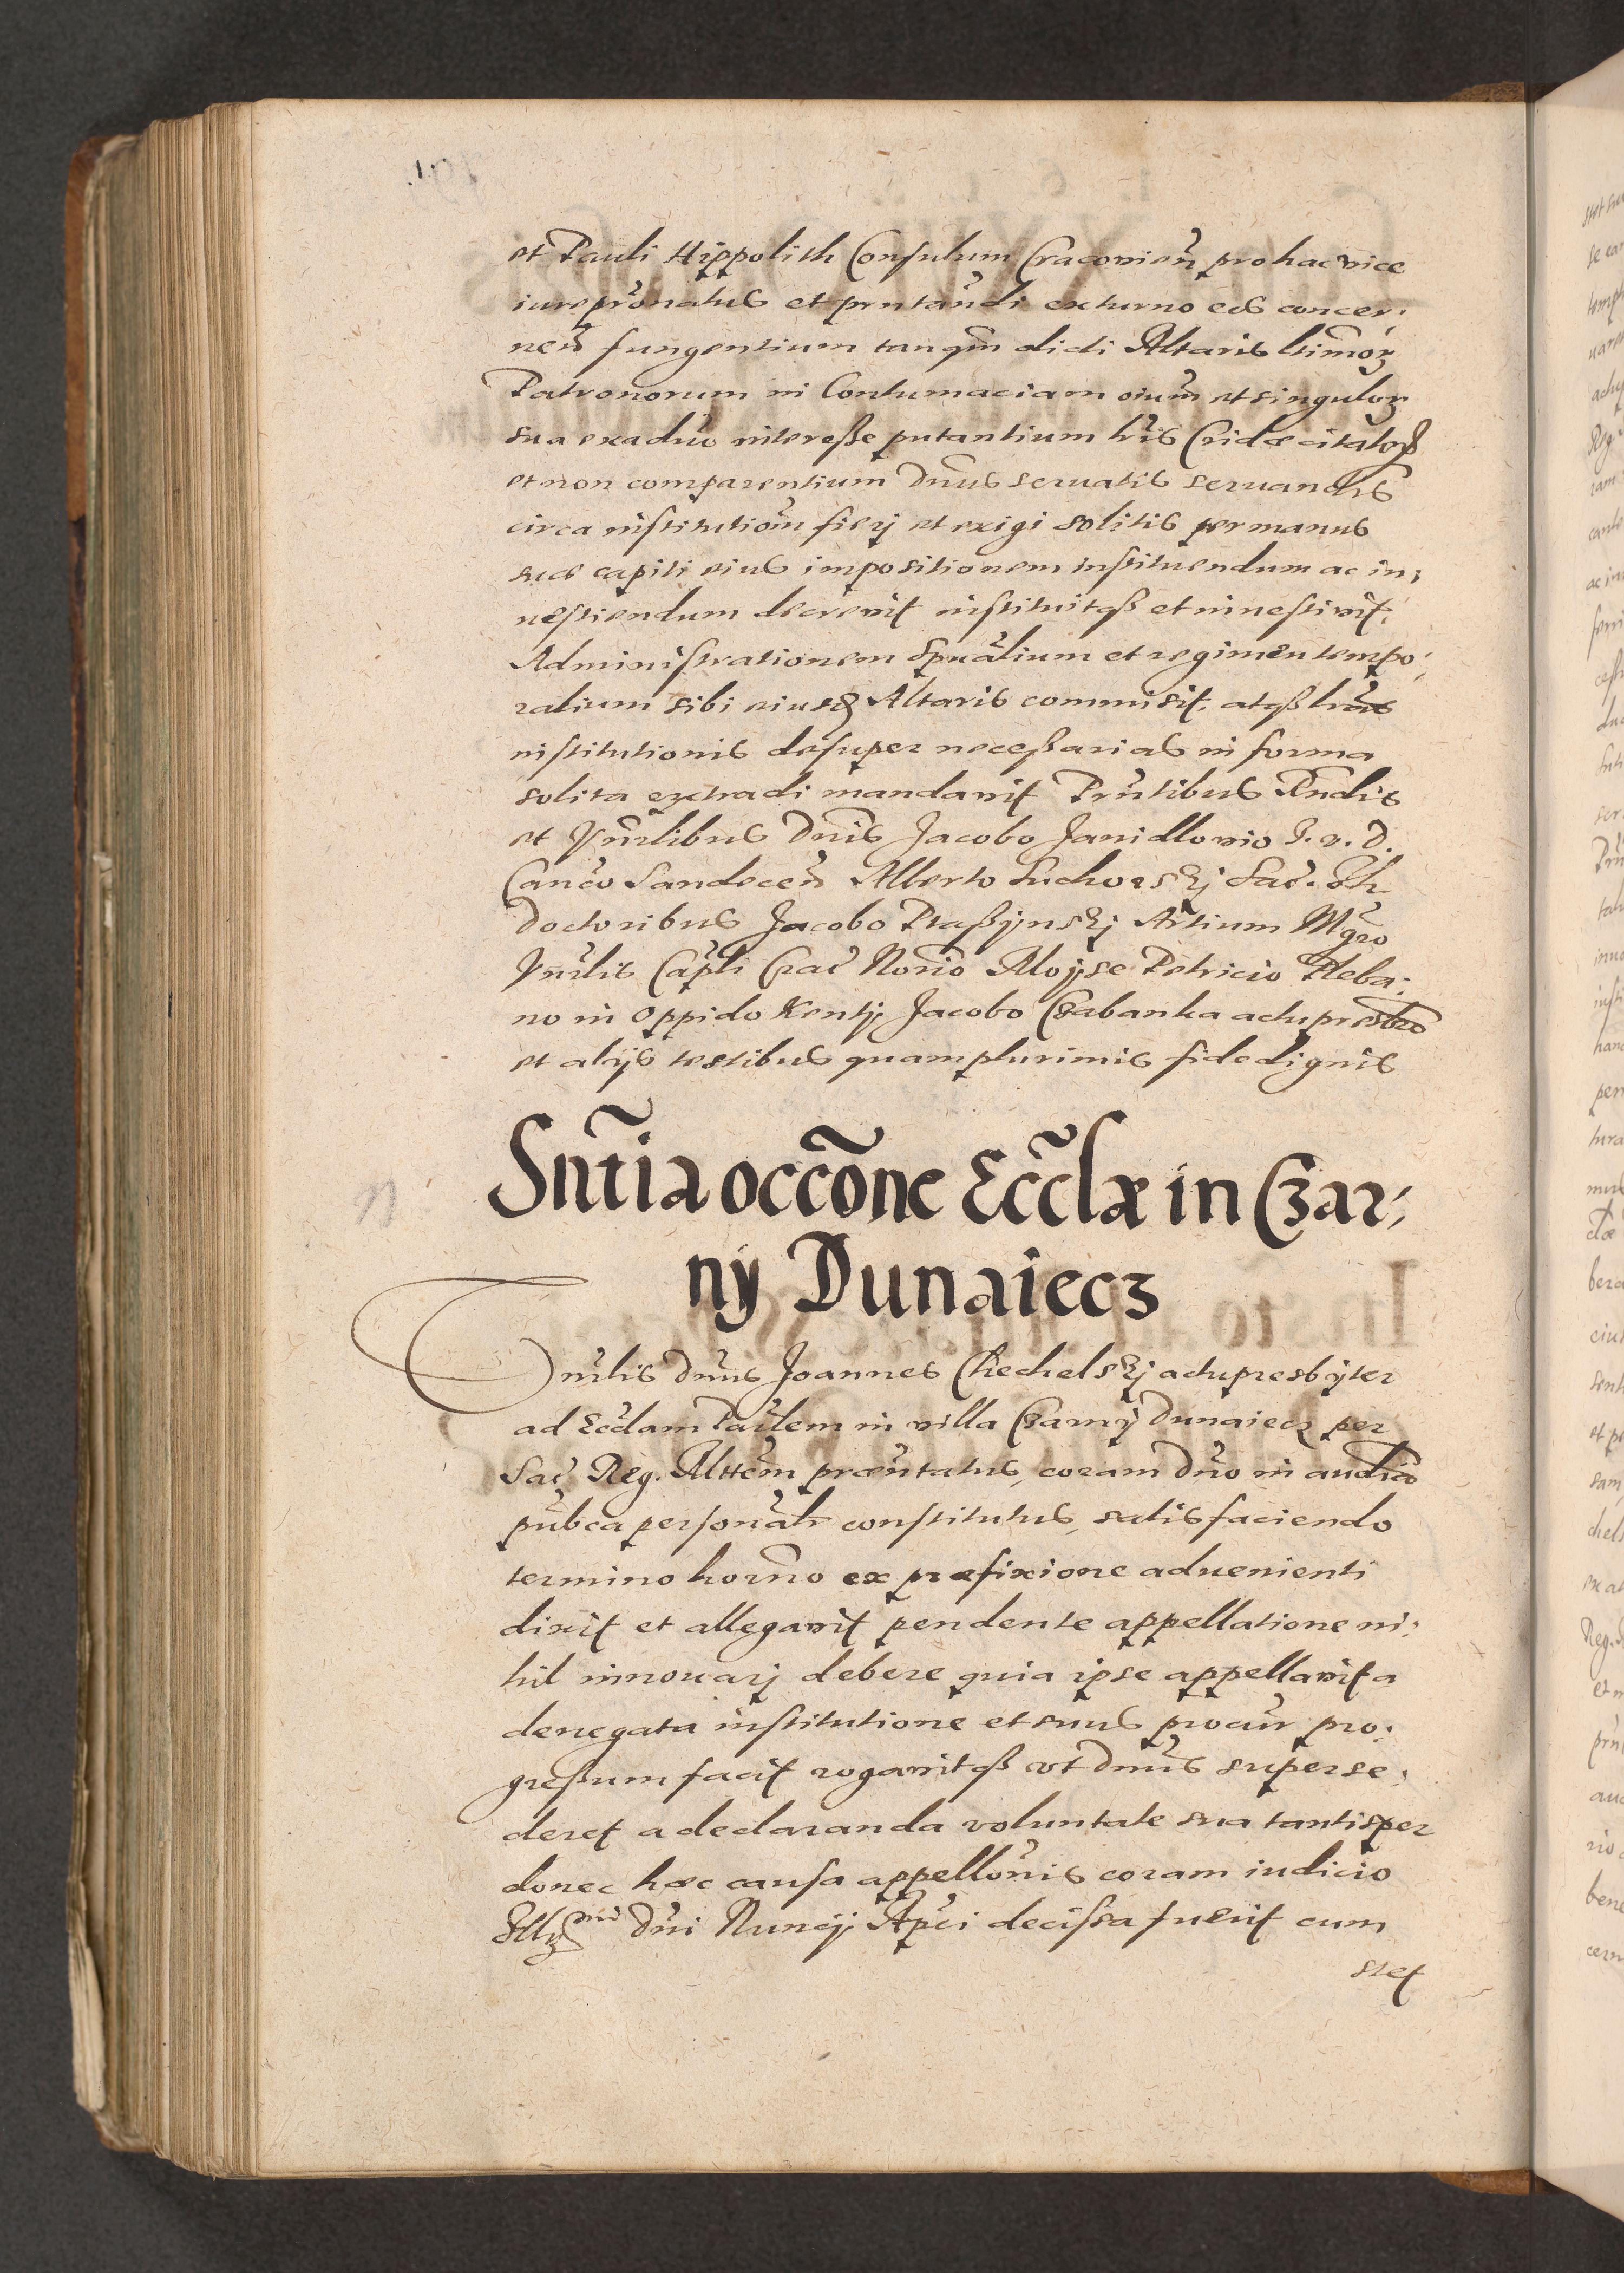 et Pauli Hippolith Consulum Cracovien̄ pro hac vice
iure pr̄onatus et pr̄ntandi ex turno eos concer,
nen̄ fungentium tanqm̄ dicti Altaris ltimoꝝ
Patronorum in Contumaciam oīum et singuloꝝ
sua ex aduo interesse putantium lr̄is Cridæ citatoꝝ
et non comparentium Dn̄us seruatis seruandis
circa institutiom̄ fierj et exigi solitis per manus
suæ capiti eius impositionem instituendum ac in,
uestiendum decrevit instituitqȝ et inuestivit,
Administrationem Spuālium et regimen tempo,
ralium sibi eiusdȝ Altaris commisit, atqȝ lr̄as
institutionis desuper necessarias in forma
solita extradi mandavit Prn̄tibus Rn̄dis
et Vn̄rlibus Dn̄is Jacobo Janidlovio J. v. D.
Can̄co Sandecen̄ Alberto Suchorskj Sac̄. Th.
Doctoribus Jacobo Ptassÿnskj Artium Mgr̄o
Vn̄rlis Cap̄li Crac̄ Norīo Aloÿse Petricio Pleba,
no in Oppido Kentÿ, Jacobo Grabanka actu presbr̄o
et alijs testibus quamplurimis fidedignis
Snt̄ia occōne Ecc̄læ in Czar,
nÿ Dunaiecz
Vn̄rlis Dn̄us Joannes Chechelskj actu presbÿter
ad Eccl̄am Parl̄em in villa Czarnÿ Dunaiecz per
Sac̄ Reg. Mttem̄ præntatus, coram Dn̄o in audiā
pūbca personālr constitutus, satisfaciendo
termino horno ex præfixione aduenienti
dixit et allegavit pendente appellatione ni,
hil innouarj debere quia ipse appellavit a
denegata institutione et suus procur̄ pro,
gressum facit rogavitqȝ vt Dn̄us superse,
deret a declaranda voluntate sua tantisper
donec hæc causa appellōnis coram iudicio
Illꝫmi Dn̄i Nuncÿ Apc̄i decissa fuerit cum
stet